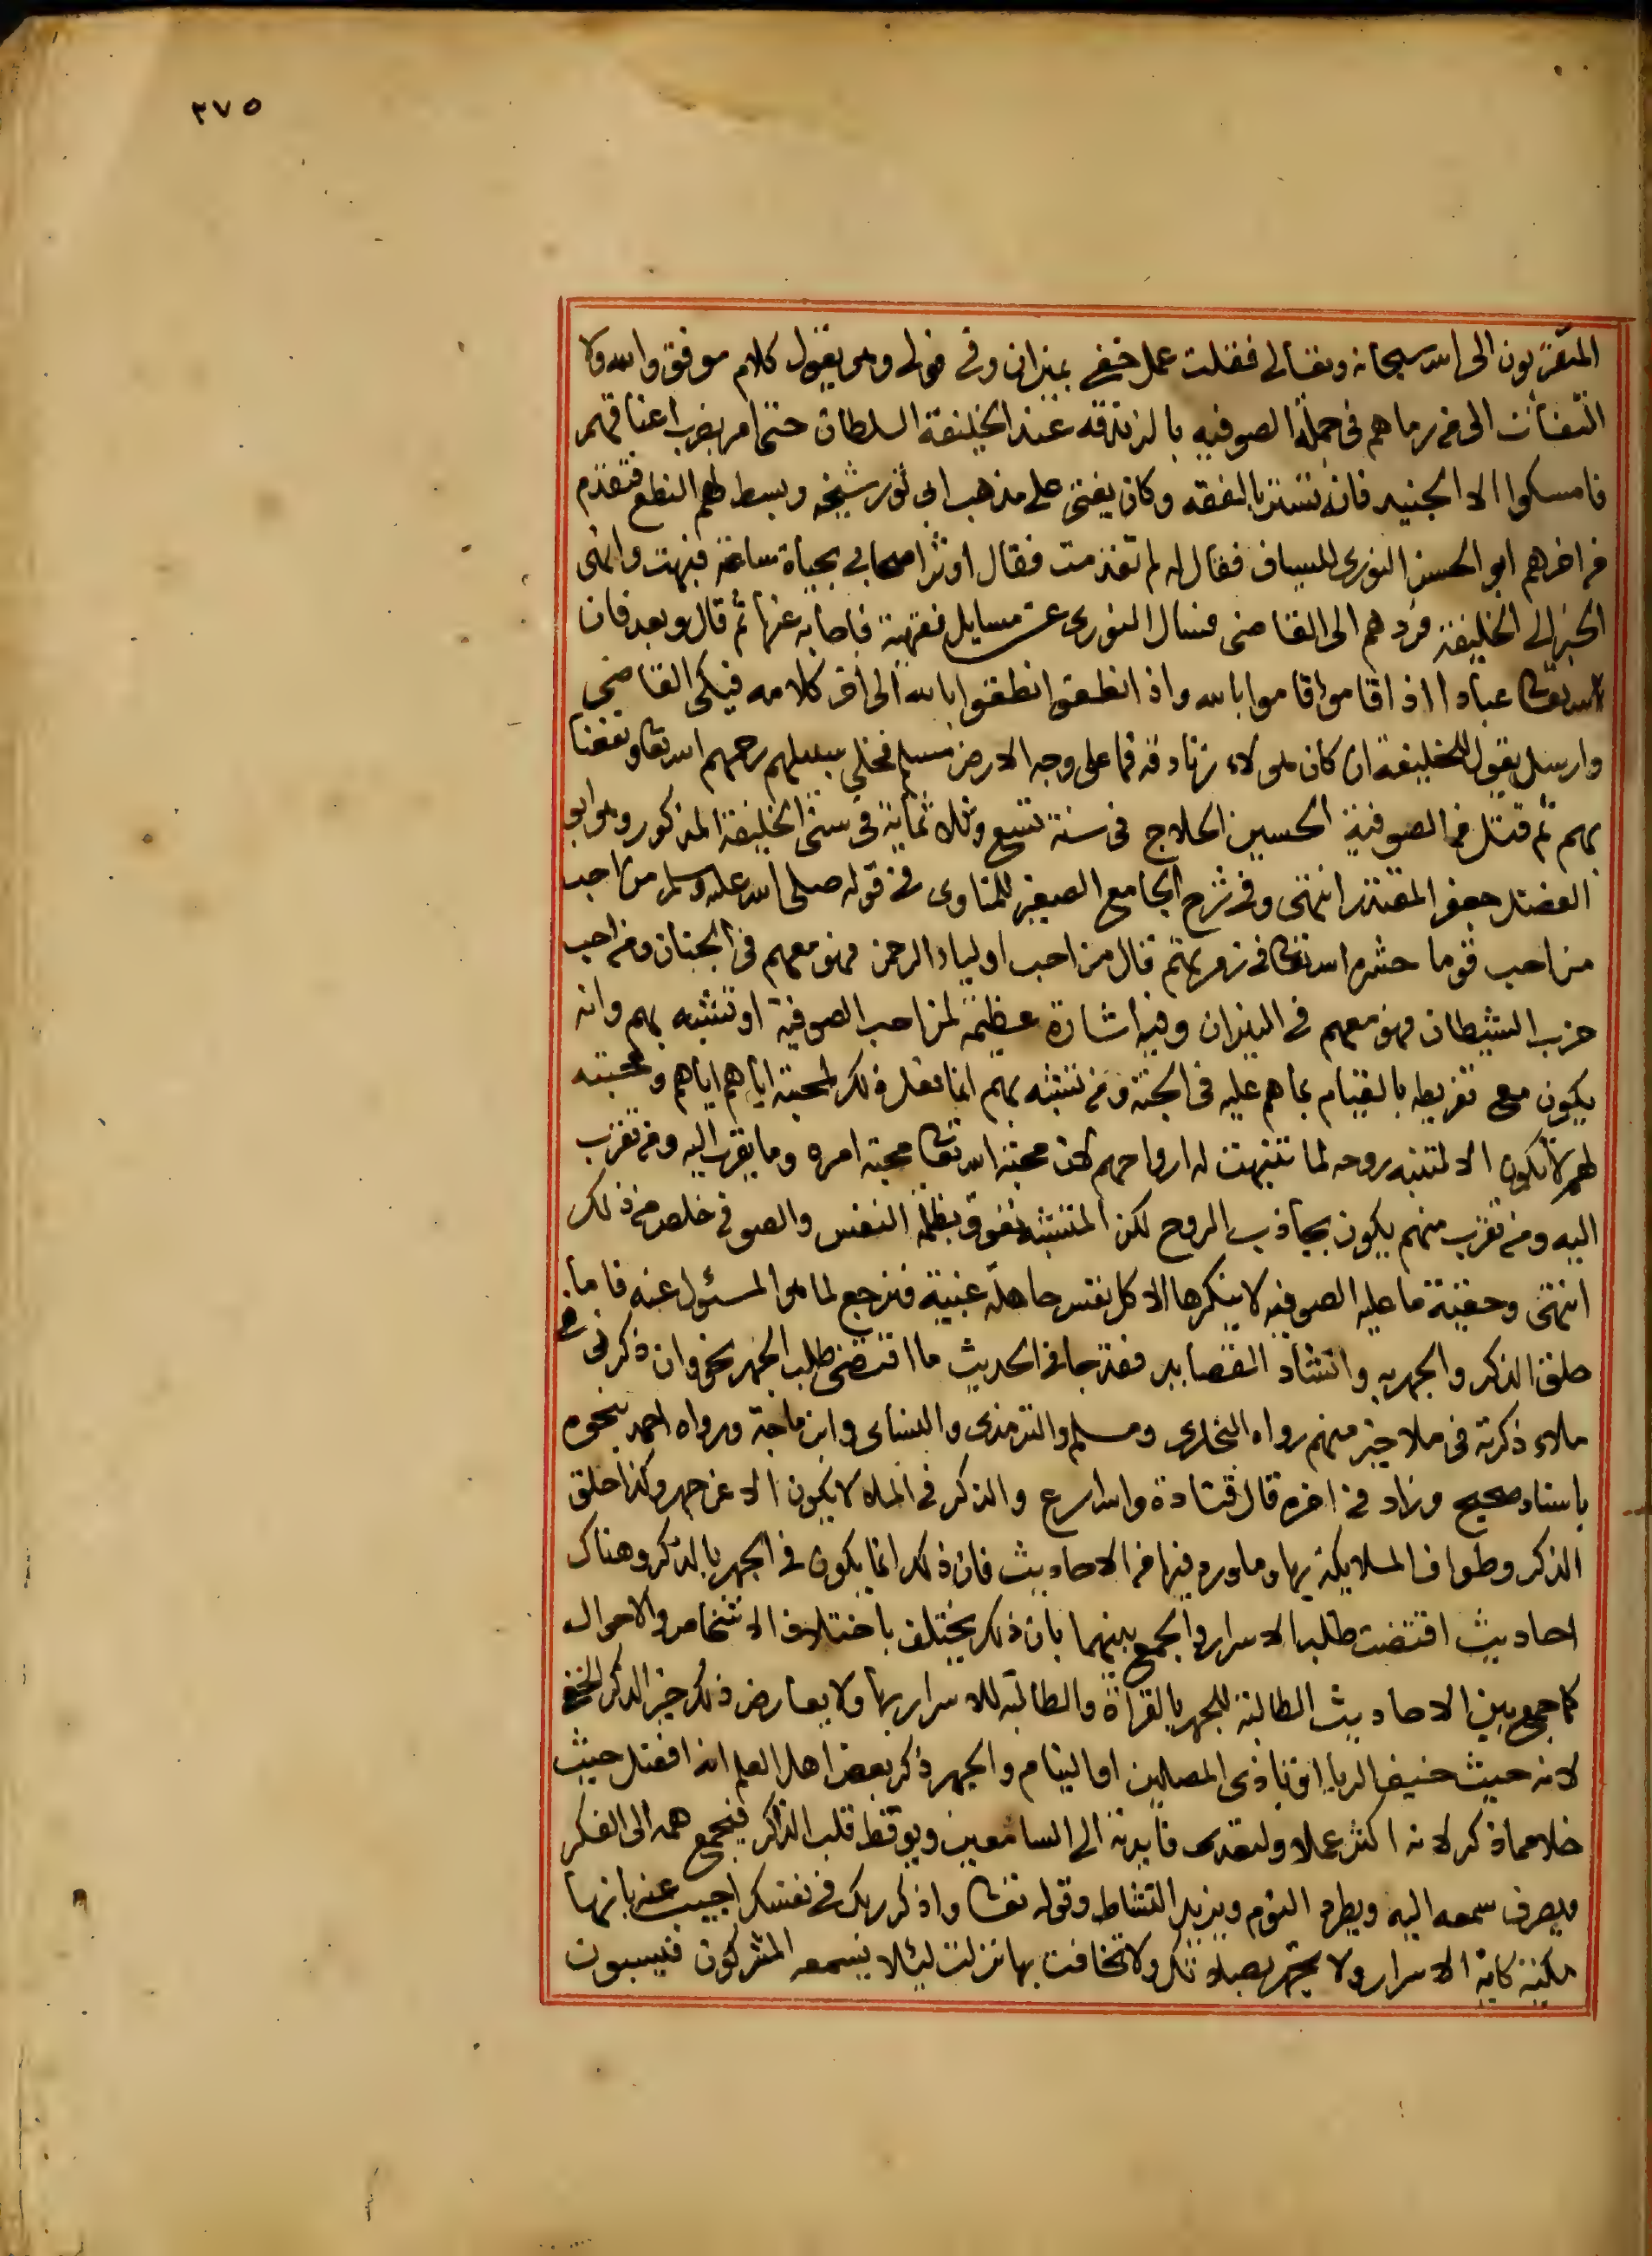 ٣٧٥
المتقربون الى الله سبحانه وتعالى فقلت عمل خفي بميزان وفي فولى وهو يقول كلام موفق والله ولا
التفات الى من رماهم في جملة الصوفيه بالزندقه عند الخليفة السلطان حتى امر بضرب اعناقهم
فامسكوا الا الجنيد فانه تستر بالفقه وكان يفتي على مذهب ابي ثور شيخه وبسط لهم النطع فتقدم
من اخرهم ابو الحسن النوري للسياف فقال له لم تقدمت فقال اوثر اصحابي بحياة ساعة فبهت وانهى
الخبر الى الخليفة فردهم الى القاضي فسال النوري عن مسايل فقهية فاجابه عنها ثم قال وبعد فان
لله تعالى عبادا اذا قاموا قاموا بالله واذا نطقوا نطقوا بالله الى اخر كلامه فبكى القاضي
وارسل يقول للخليفة ان كان هولاء زنادقه فما على وجه الارض مسلم فخلى سبيلهم رحمهم الله تعالى ونفعنا
بهم ثم قتل من الصوفية الحسين الحلاج في سنة تسع وثلاثمائة في سني الخليفة المذكور وهو ابو
الفضل جعفر المقتدر انتهى وفي شرح الجامع الصغير للمناوى في قوله صلى الله عليه وسلم من احب
من احب قوما حشره الله تعالى في زمرتهم قال من احب اولياء الرحمن فهو معهم في الجنان ومن احب
حزب الشيطان فهو معهم في النيران وفيه اشارة عظيمة لمن احب الصوفية او تشبه بهم وانه
يكون مع تفريطه بالقيام بما هم عليه في الجنة ومن تشبه بهم انما فعل ذلك لمحبته اياهم اياهم ومحبته
لهم لا تكون الا لتنبه روحه لما تنبهت له ارواحهم لان محبة الله تعالى محبة امره وما يقرب اليه ومن تقرب
اليه ومن تقرب منهم يكون بجاذب الروح لكن المتشبه تعوق بظلمة النفس والصوفي خلص من ذلك
انتهى وحقيقة ما عليه الصوفيه لا ينكرها الا كل نفس جاهلة غبية فنرجع لما هو المسئول عنه فاما من
حلق الذكر والجهر به وانشاد القصايد فقد جا في الحديث ما اقتضى طلب الجهر نحو وان ذكرني في
ملاء ذكرته في ملا خير منهم رواه البخارى ومسلم والترمذى والنساى وابن ماجة ورواه احمد بنحوه
باسناد صحيح وزاد في اخره قال قتادة والله اسرع والذكر في الملا لا يكون الا عن جهر وكذا حلق
الذكر وطواف الملايكة بها وما ورد فيها من الاحاديث فان ذلك انما يكون في الجهر بالذكر وهناك
احاديث اقتضت طلب الاسرار والجمع بينهما بان ذلك يختلف باختلاف الاشخاص والاحوال
كما جمع بين الاحاديث الطالبة للجهر بالقراة والطالبة للاسرار بها ولا يعارض ذلك خير الذكر الخفي
لانه حيث خيف الريا او تاذى المصلين او النيام والجهر ذكر بعض اهل العلم انه افضل حيث
خلا مما ذكر لانه اكثر عملا ولتعدى فايدته الى السامعين ويوقظ قلب الذاكر فيجمع همه الى الفكر
ويصرف سمعه اليه ويطرد النوم ويزيد النشاط وقوله تعالى واذكر ربك في نفسك اجيب عنه بانها
مكية كاية الاسرار ولا تجهر بصلاتك ولا تخافت بها نزلت ليئلا يسمعه المشركون فيسبون